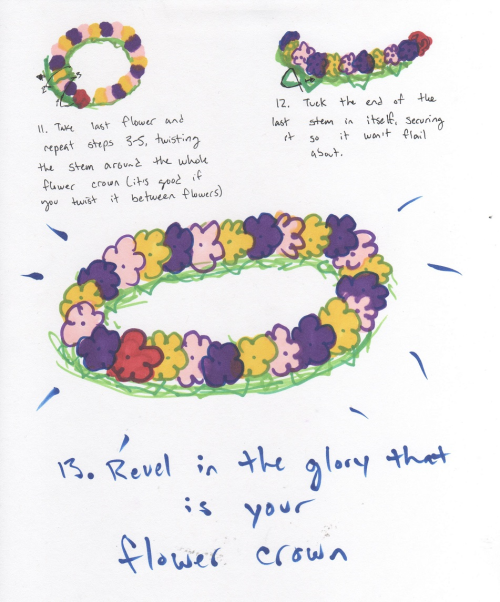 11. Take last flower and
repeat steps 3-5, twisting
the stem around the whole
flower crown (it's good if
you twist it between flowers)
12. Tuck the end of the
last stem in itself, securing
it so it won't flail
about.
13. Revel in the glory that
is your
flower crown